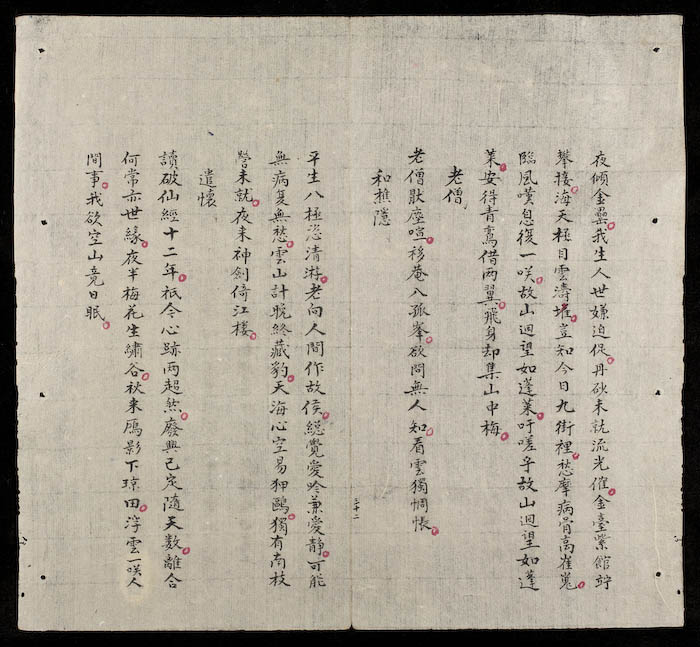 夜傾金罍我生人世嫌迫促丹砂未就流光催金臺紫館竚
攀接海天極目雲濤堆豈知今日九街裡愁摩病骨高崔嵬
臨風嘆息復一咲故山迴望如蓬萊吁嗟乎故山迴望如蓬
萊安得青鸞借兩翼飛身却集山中梅
老僧
老僧猒塵喧移菴入孤峯欲問無人知看雲獨惆悵
和樵隱
三十二
平生八極恣清游老向人間作故侯縂覺愛吟兼愛靜可能
無病復無愁雲山計晚終藏豹天海心空易狎鷗獨有南枝
營未就夜来神劍倚江樓
遣懷
讀破仙經十二年祇今心跡兩超然廢興已定隨天数離合
何常亦世緣夜半梅花生繡谷秋来鴈影下瓊田浮雲一咲人
間事我欲空山竟日眠